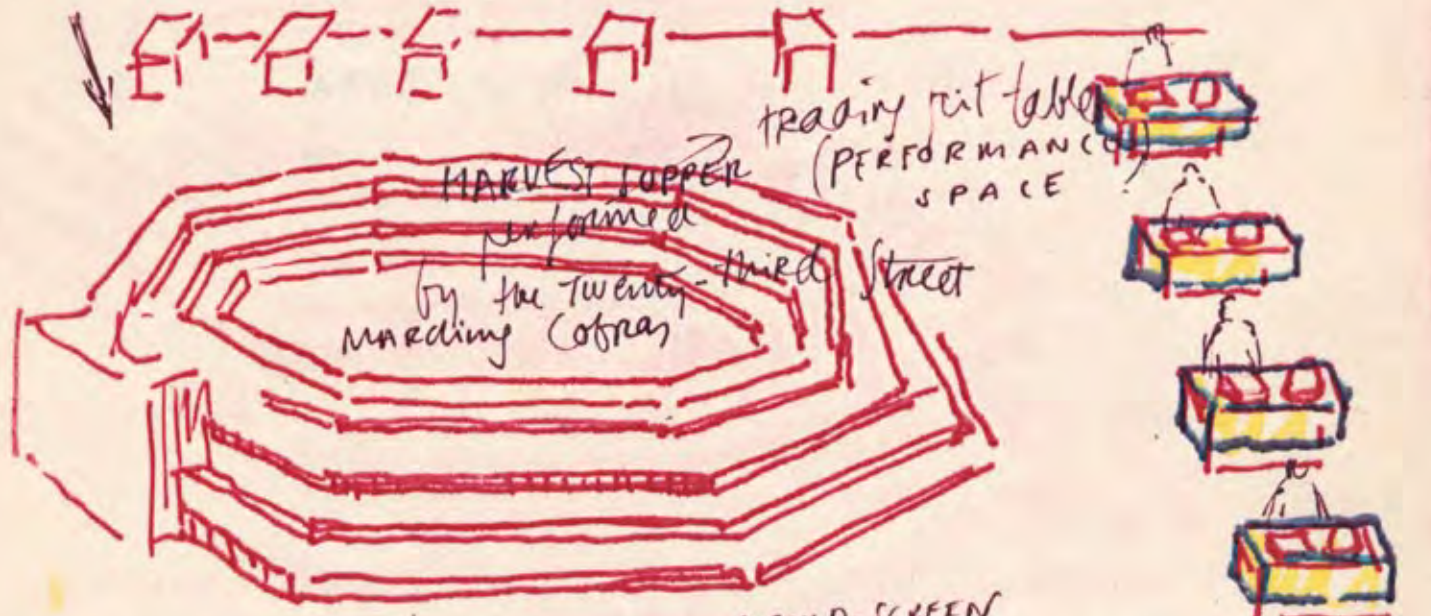 trading pit table
(PERFORMANCE
SPACE)
HARVEST SUPPER
performed
by the Twenty-third Street
MARCHING Cobras
SCREEN